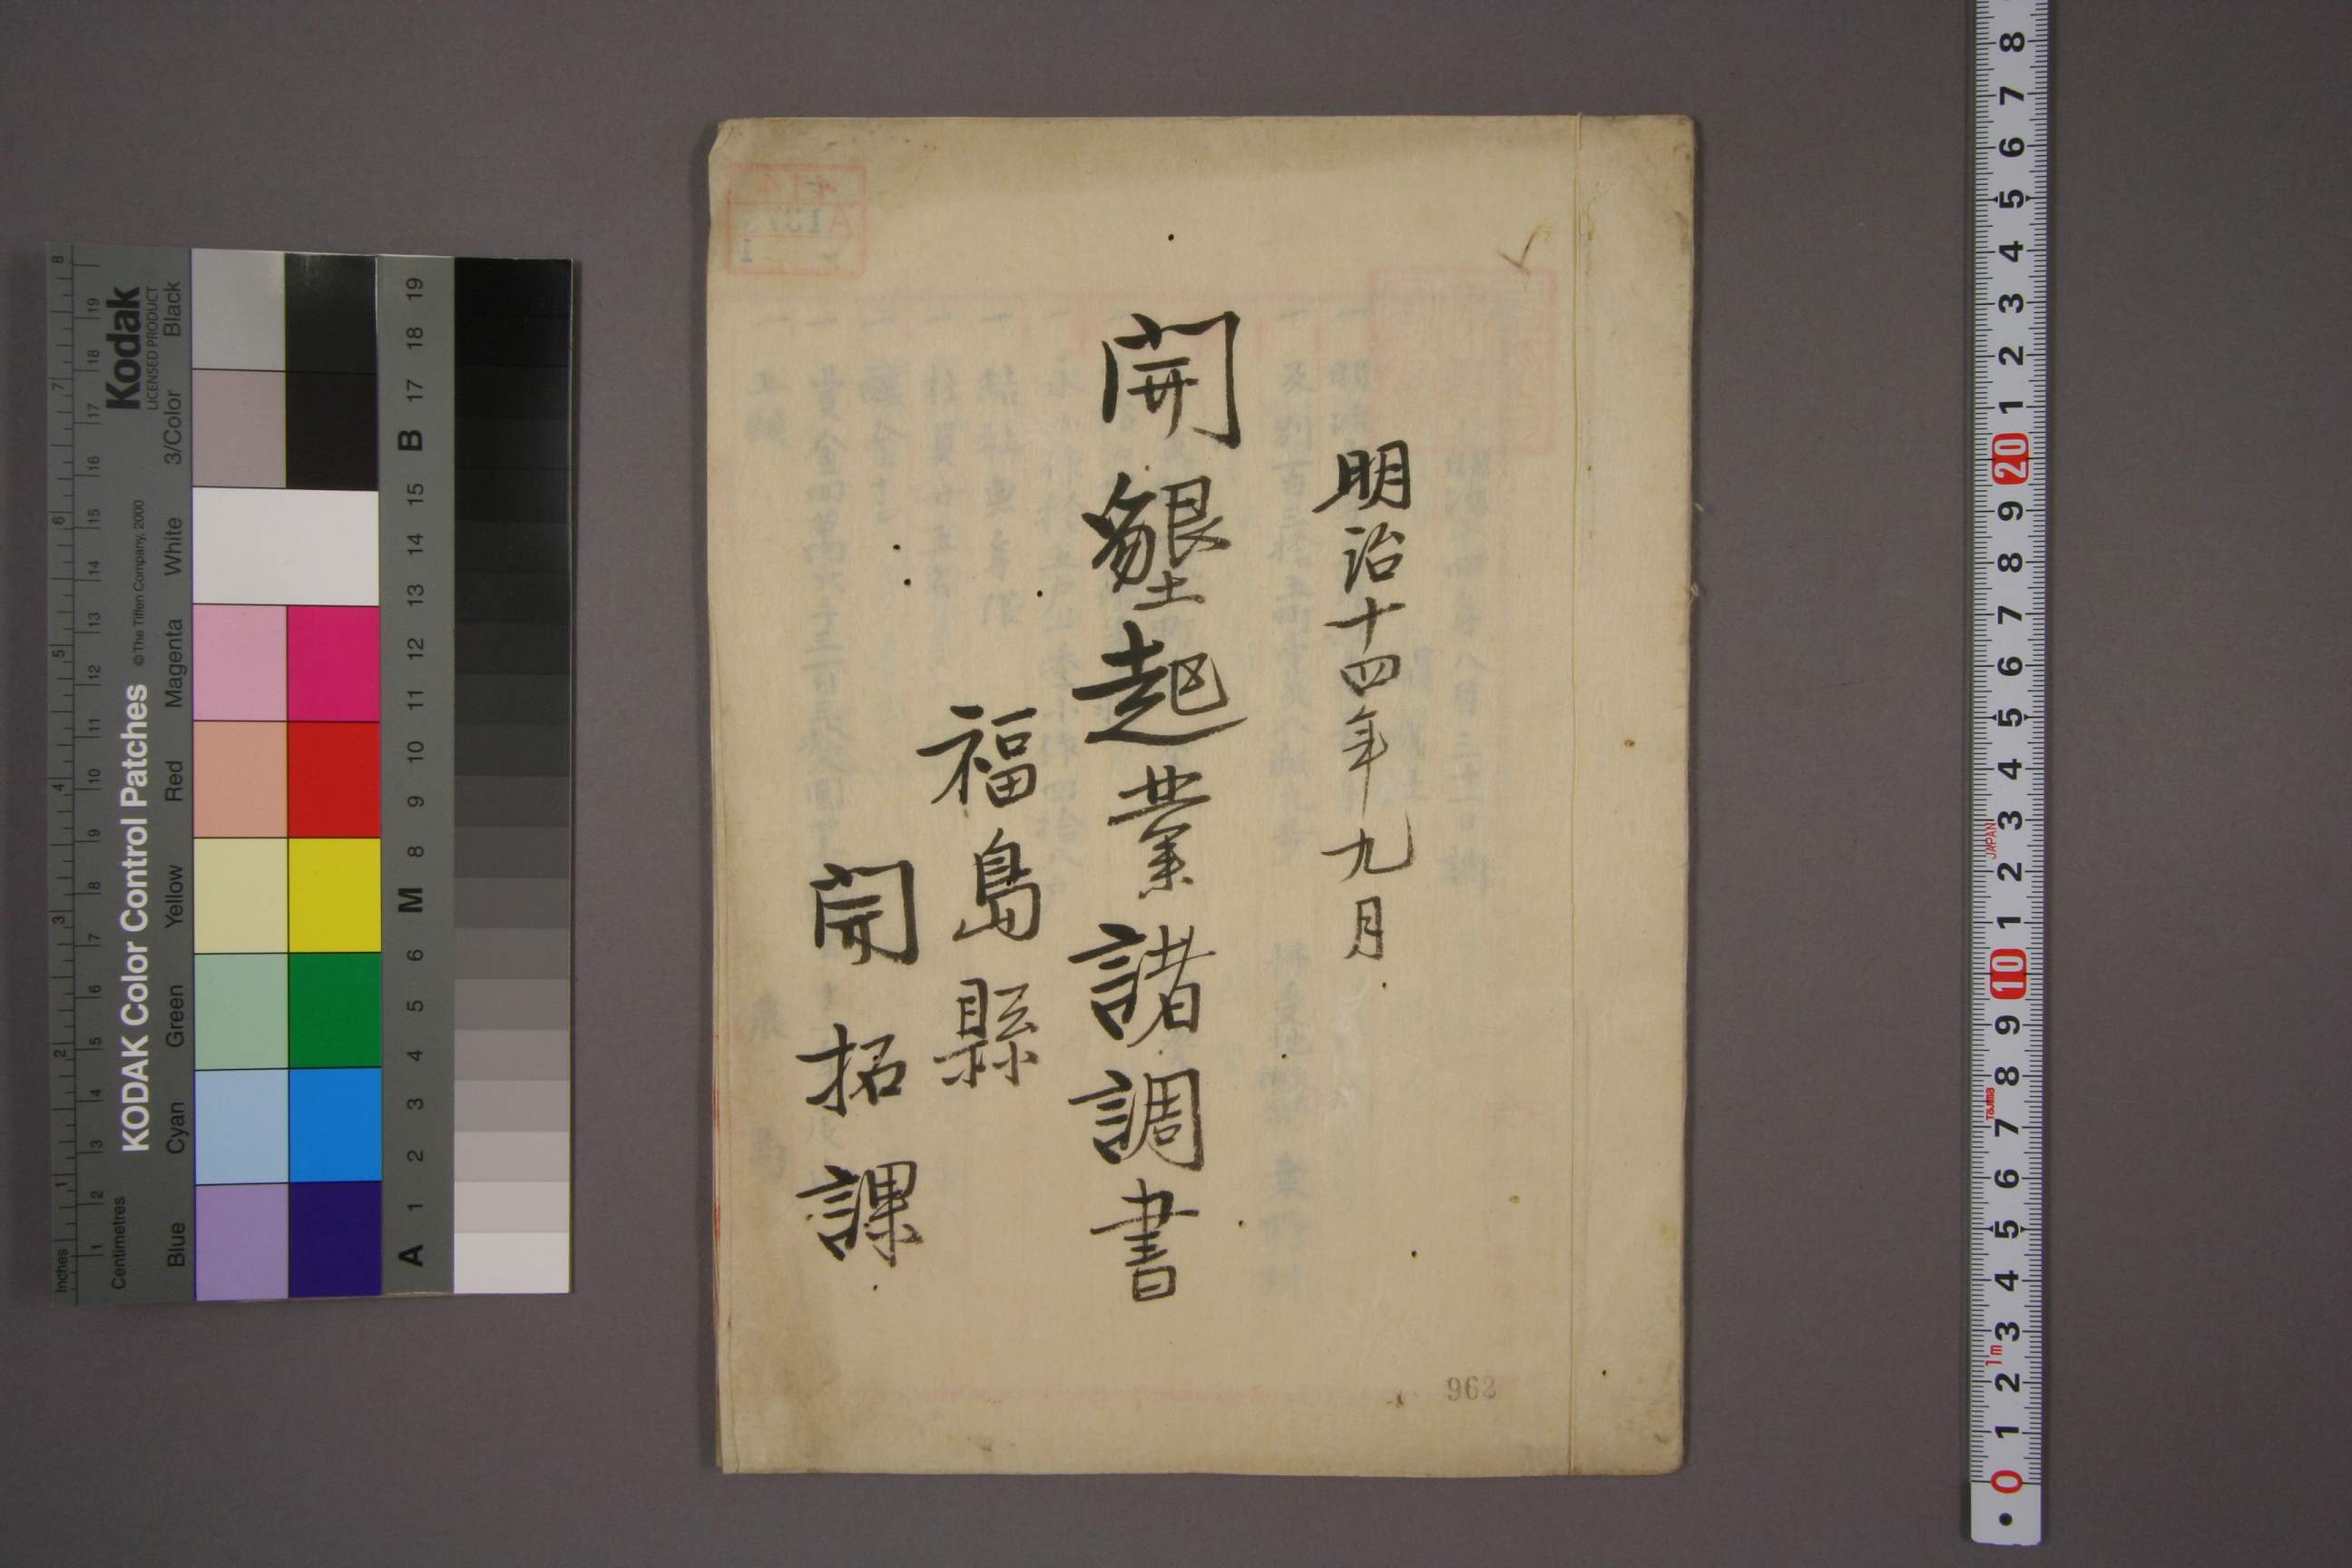 明治十四年九月
開墾起業諸調書
福島縣
開拓課
962
KODAK Color Control Patches
©The Tiffen Company, 2000
Kodak
LICENSED PRODUCT
Inches
Centimetres
Blue
Cyan
Green
Yellow
Red
Magenta
White
3/Color
Black
A 1 2 3 4 5 6 M 8 9 10 11 12 13 14 15 B 17 18 19
8 7 6 5 4 3 2 1 20 9 8 7 6 5 4 3 2 1 10 9 8 7 6 5 4 3 2 1 0
JAPAN
Tajima
1m